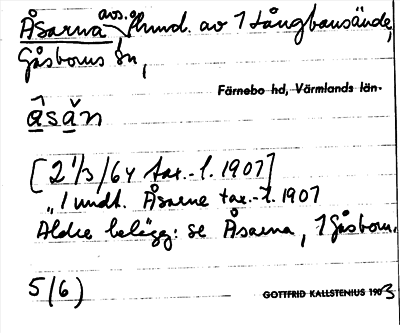 Åsarna, avs. o. hmd. av 1 Långbansände,
Gåsborns sn,
Färnebo hd, Värmlands län.
åsăn
[2 1/3/64 tax.-l. 1907]
"1 undt. Åsarne tax.-l. 1907
Äldre belägg: se Åsarna, 1 Gåsborn.
5(6)
GOTTFRID KALLSTENIUS 1903